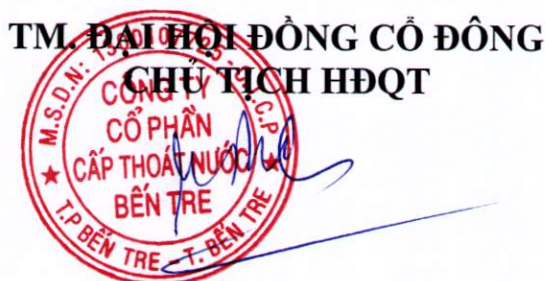 TM. ĐẠI HỘI ĐỒNG CỔ ĐÔNG
CHỦ TỊCH HĐQT
CÔNG TY
CỔ PHẦN
CẤP THOÁT NƯỚC
BẾN TRE
M.S.D.N:
C.P
T.P BẾN TRE - T. BẾN TRE